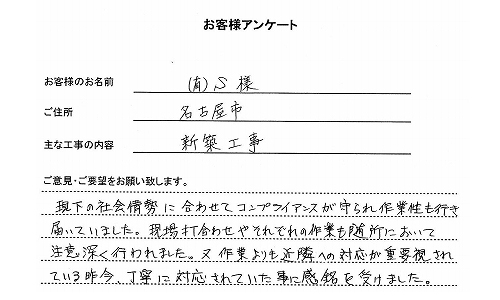 お客様アンケート
お客様のお名前 (有)S 様
ご住所 名古屋市
主な工事の内容 新築工事
ご意見・ご要望をお願い致します。
現下の社会情勢に合わせてコンプライアンスが守られ作業性も行き
届いていました。現場打合わせやそれぞれの作業も随所において
注意深く行われました。又作業よりも近隣への対応が重要視され
ている昨今、丁寧に対応されていた事に感銘を受けました。